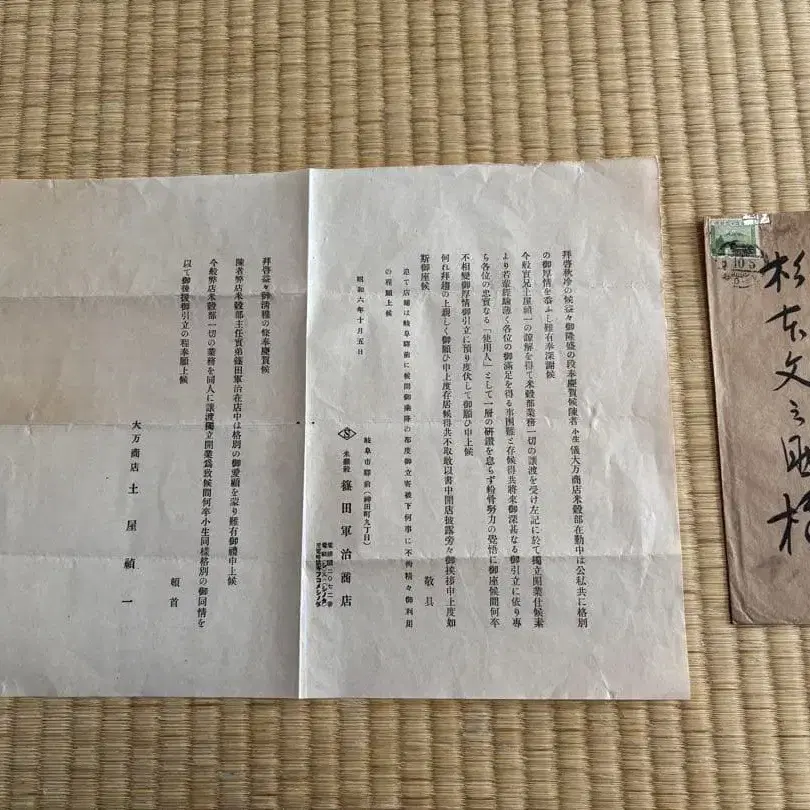 拜啓秋冷の候益々御隆盛の段奉慶賀候陳者小生儀大万商店米穀部在勤中は公私共に格別
の御厚情を忝ふし難有奉深謝候
今般實兄土屋禎一の諒解を得て米穀部業務一切の讓渡を受け左記に於て獨立開業仕候素
より若輩經驗薄く各位の御滿足を得る事困難と存候得共將來御深甚なる御引立に依り專
ら各位の忠實なる「使用人」として一層の研鑽を怠らず粉骨努力の覺悟に御座候間何卒
不相變御厚情御引立に預り度伏して御願ひ申上候
何れ拜趨の上親しく御願ひ申上度存居候得共不取敢以書中開店披露旁々御挨拶申上度如
斯御座候
敬具
追て店舗は岐阜驛前に候間御乘降の都度御立寄被下何事に不拘精々御利用
の程願上候
昭和六年十月五日
岐阜市驛前(神田町九丁目)
S 米穀 篠田軍治商店
拜啓益々御淸雅の條奉慶賀候
陳者弊店米穀部主任實弟篠田軍治在店中は格別の御愛顧を蒙り難有御禮申上候
今般弊店米穀部一切の業務を同人に讓渡獨立開業爲致候間何卒小生同樣格別の御同情を
以て御後援御引立の程奉願上候
頓首
大万商店 土屋禎一
10.5
杉本文之助様